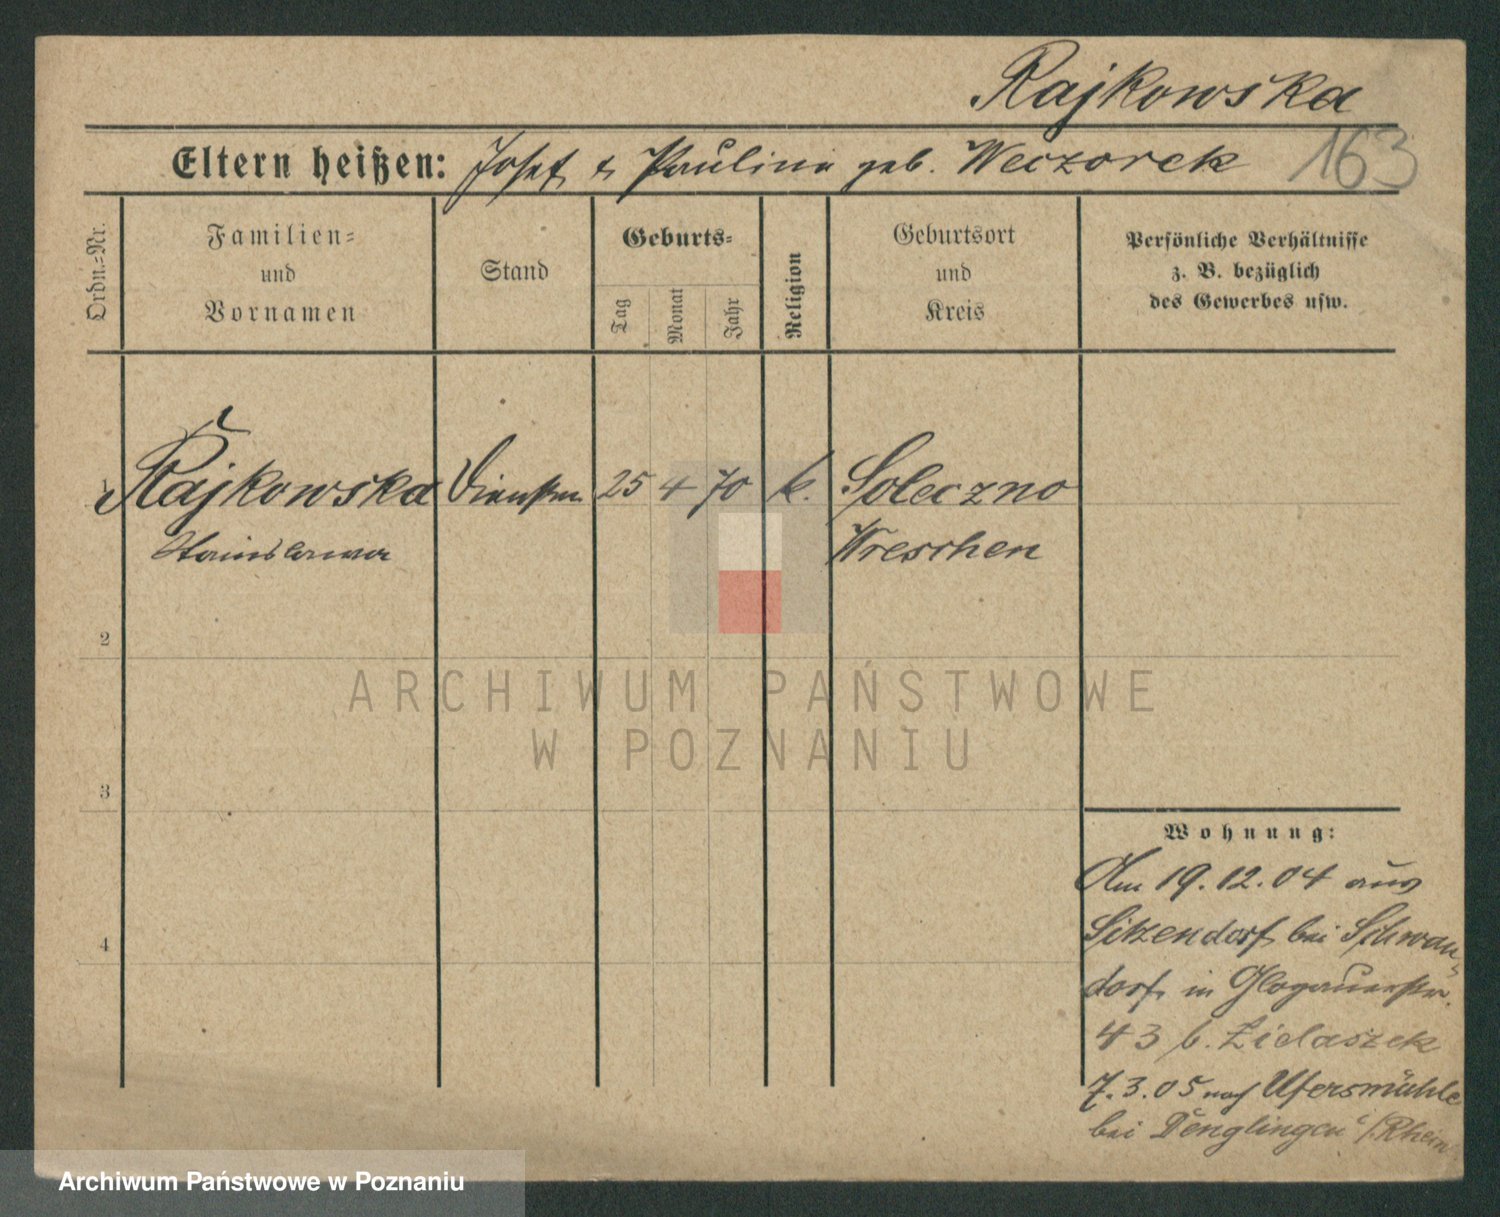 Rajkowska
Eltern heißen: Josef & Paulina geb. Weczorek 163
Ordn.-Nr.
Familien-
und
Vornamen
Stand
Geburts-
Tag
Monat
Jahr
Religion
Geburtsort
und
Kreis
Persönliche Verhältnisse
z. B. bezüglich
des Gewerbes usw.
1 Rajkowska 25 4 70 k. Soleczno
Stanislawa Wreschen
2
3
4
Wohnung:
Am 19.12.04 aus
Sitzendorf bei Schwan-
dorf in Glogauerstr.
43 b. Zidaszek
7.3.05 nach Ufersmühle
bei Denglingen /Rhein
ARCHIWUM PAŃSTWOWE
W POZNANIU
Archiwum Państwowe w Poznaniu